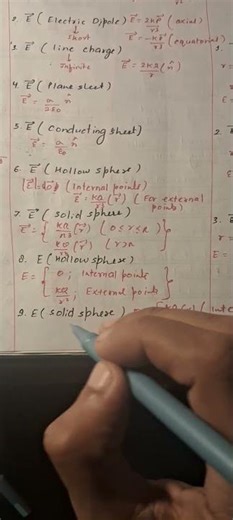 2. E⃗ (Electric Dipole) E⃗ = 2kP⃗/r³ (axial)
↓ short E⃗ = -kP⃗/r³ (equatorial)
3. E⃗ (line charge)
↳ Infinite E⃗ = 2kλ/r (n̂)
4. E⃗ (Plane sheet)
E⃗ = σ/2ε₀ n̂
5. E⃗ (Conducting sheet)
E⃗ = σ/ε₀ n̂
6. E⃗ (Hollow sphere)
(Internal points)
E⃗ = kQ/r² (r̂) (For external points)
7. E⃗ (solid sphere)
E⃗ = { kQ/R³ (r⃗) (0≤r≤R)
kQ/r² (r̂) (r>R)
8. E (Hollow sphere)
E = { 0; Internal points
kQ/r²; External points
9. E (solid sphere)